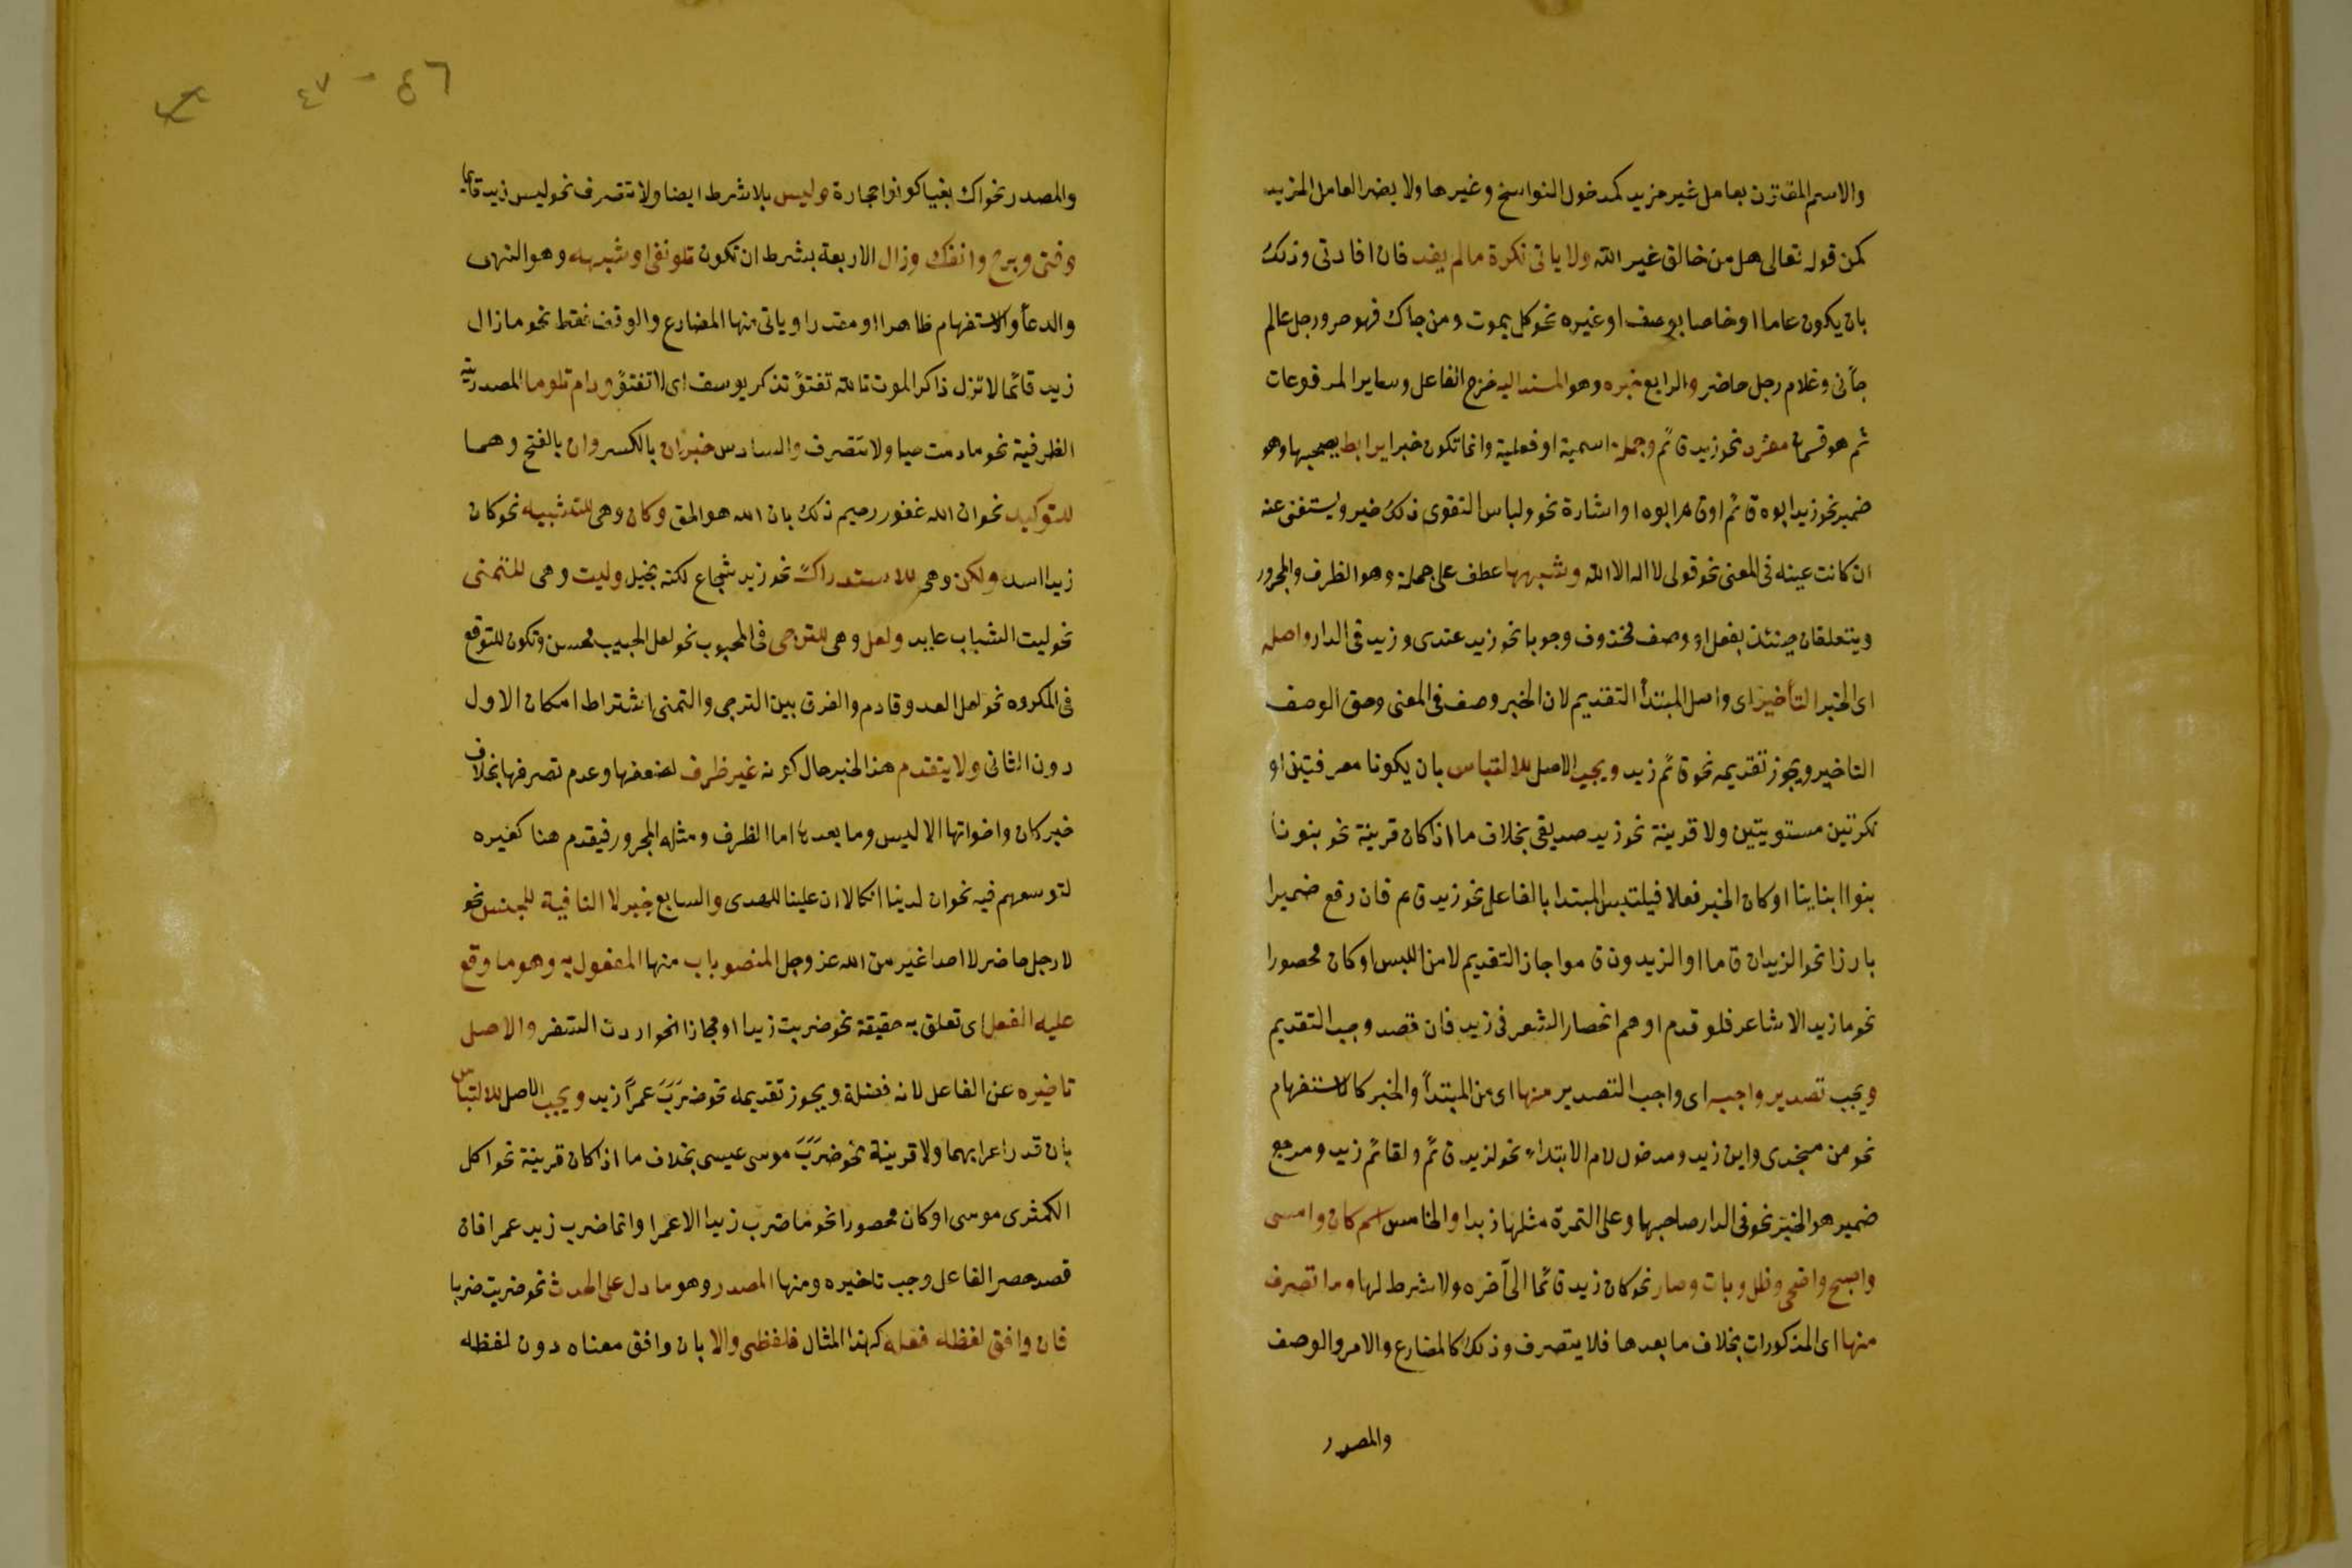 والاسم المقترن بعامل غير مزيد كمدخول النواسخ وغيرها ولا يضر العامل المزيد
كمن قوله تعالى هل من خالق غير الله ولا ياتى نكرة ما لم يفد فان افاد تى وذلك
بان يكون عاما او خاصا بوصف او غيره نحو كل يموت ومن جاك فهو حر ورجل عالم
جآنى وغلام رجل حاضر والرابع خبره وهو المسند اليه فخرج الفاعل وساير المرفوعات
ثم هو قسمان مفرد نحو زيد قائم وجملة اسمية او فعلية وانما تكون خبرا برابط يصحبها وهو
ضمير نحو زيد ابوه قائم او قام ابوه او اشارة نحو ولباس التقوى ذلك خير ويستغنى عنه
ان كانت عينه فى المعنى نحو قولى لا اله الا الله وشبهها عطف على جملة وهو الظرف والمجرور
ويتعلقان حينئذ بفعل او وصف محذوف وجوبا نحو زيد عندى وزيد فى الدار واصله
اى الخبر التأخير اى واصل المبتدأ التقديم لان الخبر وصف فى المعنى وحق الوصف
التاخير ويجوز تقديمه نحو قائم زيد ويجب الاصل للالتباس بان يكونا معرفتين او
نكرتين مستويتين ولا قرينة نحو زيد صديقى بخلاف ما اذا كان قرينة نحو بنونا
بنوا ابناينا او كان الخبر فعلا فيلتبس المبتدا بالفاعل نحو زيد قام فان رفع ضميرا
بارزا نحو الزيدان قاما او الزيدون قاموا جاز التقديم لامن اللبس او كان محصورا
نحو ما زيد الا شاعر فلو قدم اوهم انحصار الشعر فى زيد فان قصد وجب التقديم
ويجب تصدير واجبه اى واجب التصدير منها اى من المبتدأ والخبر كالاستفهام
نحو من منجدى واين زيد ومدخول لام الابتداء نحو لزيد قائم ولقائم زيد ومرجع
ضمير هو الخبر نحو فى الدار صاحبها وعلى التمرة مثلها زبدا والخامس اسم كان وامسى
واصبح واضحى وظل وبات وصار نحو كان زيد قائما الى آخره ولا شرط لها وما تصرف
منها اى المذكورات بخلاف ما بعدها فلا يتصرف وذلك كالمضارع والامر والوصف
والمصدر
٤٦ - ٤٧
والمصدر نحو اك بغيا كونوا حجارة وليس بلا شرط ايضا ولا تتصرف نحو ليس زيد قايما
وفتى وبرح وانفك وزال الاربعة بشرط ان تكون تلو نفى او شبهه وهو النهى
والدعأ والاستفهام ظاهرا او مقدرا وياتى منها المضارع والوصف فقط نحو ما زال
زيد قائما لا تزل ذاكر الموت تالله تفتؤ تذكر يوسف اى لا تفتؤ ودام تلو ما المصدرية
الظرفية نحو ما دمت حيا ولا تتصرف والسادس خبر ان بالكسر وان بالفتح وهما
للتوكيد نحو ان الله غفور رحيم ذلك بان الله هو الحق وكان وهى للتشبيه نحو كان
زيدا اسد ولكن وهى للاستدراك نحو زيد شجاع لكنه بخيل وليت وهى للتمنى
نحو ليت الشباب عايد ولعل وهى للترجى فى المحبوب نحو لعل الحبيب محسن وتكون للتوقع
فى المكروه نحو لعل العدو قادم والفرق بين الترجى والتمنى اشتراط امكان الاول
دون الثانى ولا يتقدم هذا الخبر حال كونه غير ظرف لضعفها وعدم تصرفها بخلاف
خبر كان واخواتها الا ليس وما بعدها اما الظرف ومثله المجرور فيقدم هنا كغيره
لتوسعهم فيه نحو ان لدينا انكالا ان علينا للهدى والسابع خبر لا النافية للجنس نحو
لا رجل حاضر لا احد اغير من الله عز وجل المنصوبات منها المفعول به وهو ما وقع
عليه الفعل اى تعلق به حقيقة نحو ضربت زيدا او مجازا نحو اردت السفر والاصل
تاخيره عن الفاعل لانه فضلة ويجوز تقديمه نحو ضَرَبَ عمراً زيد ويجب الاصل للالتباس
بان قدر اعرابهما ولا قرينة نحو ضَرَبَ موسى عيسى بخلاف ما اذا كان قرينة نحو اكل
الكمثرى موسى او كان محصورا نحو ما ضرب زيد الا عمرا وانما ضرب زيد عمرا فان
قصد حصر الفاعل وجب تاخيره ومنها المصدر وهو ما دل على الحدث نحو ضربت ضربا
فان وافق لفظه فعله كهذا المثال فلفظى والا بان وافق معناه دون لفظه